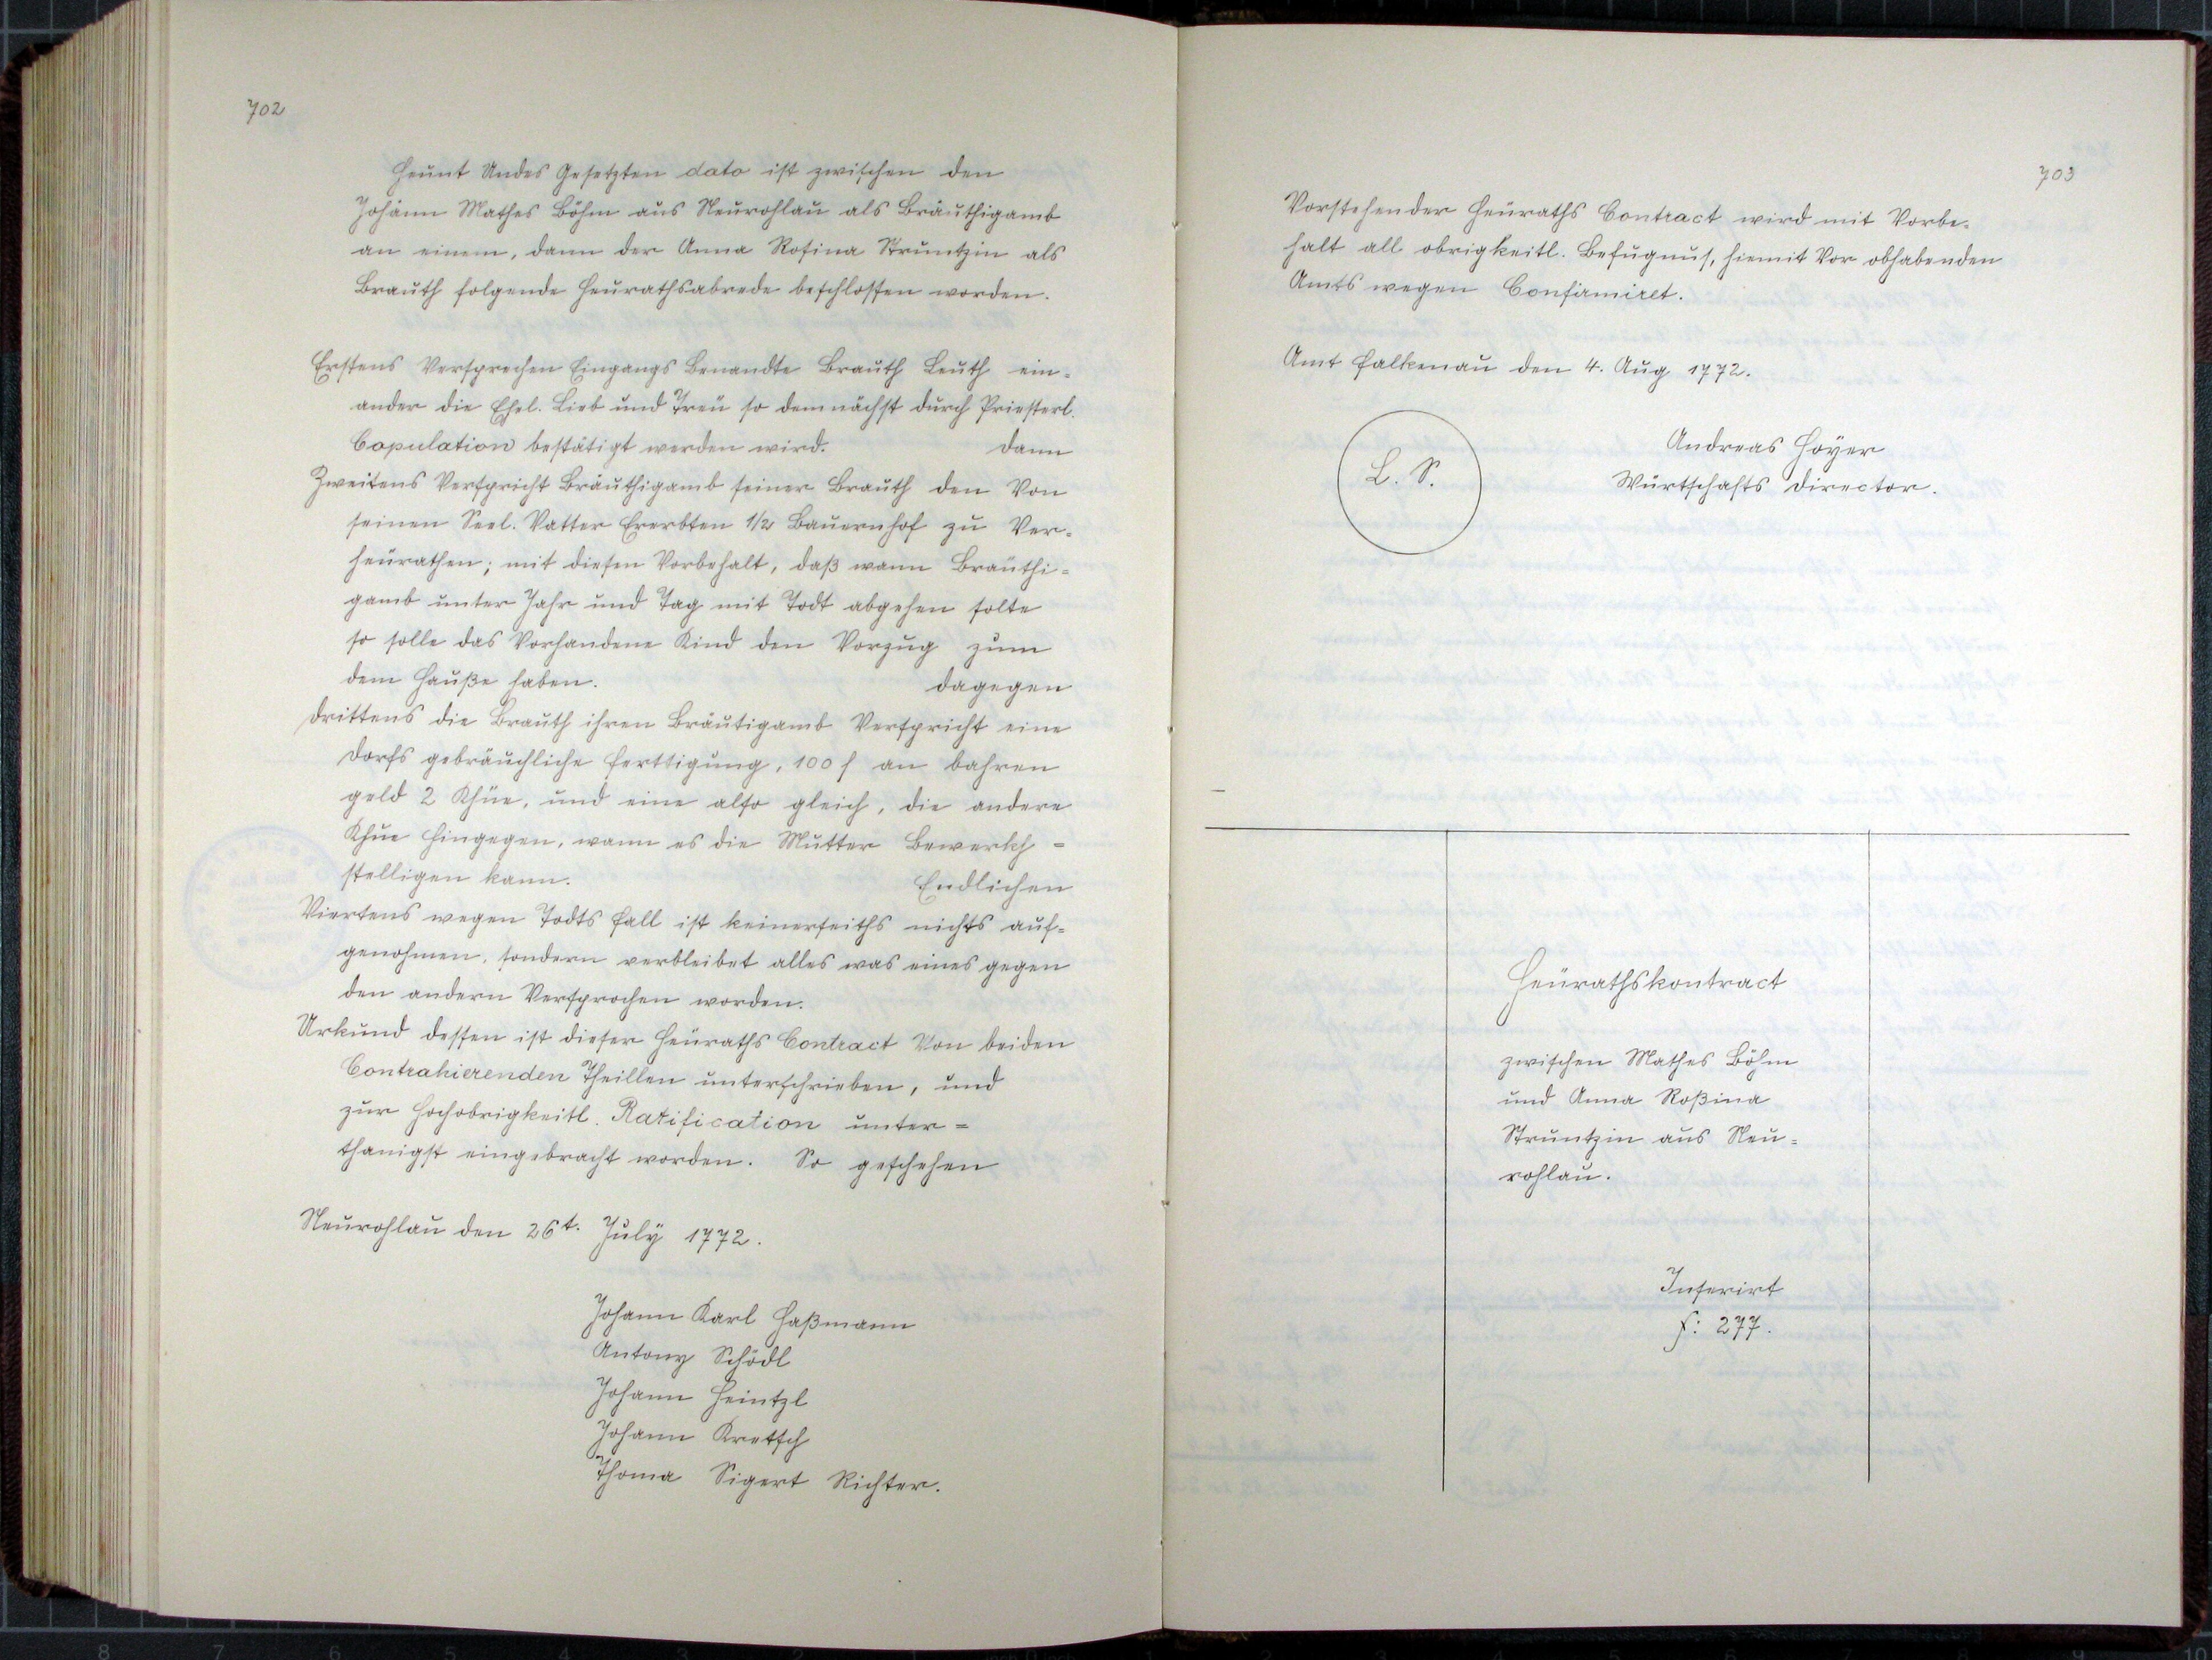 702
Heunt Undes Gesetzten dato ist zwischen den
Johann Mathes Böhm aus Neurohlau als Bräuthigamb
an einem, dann der Anna Rosina Struntzin als
Brauth folgende Heurathsabrede beschlossen worden.
Erstens Versprechen Eingangs Benandte Brauth Leuth ein-
ander die Ehel. Lieb und Treu so demnächst durch Priesterl.
Copulation bestätigt werden wird. dann
Zweitens Verspricht Bräuthigamb seiner Brauth den Von
seinen Seel. Vatter Ererbten 1/2 Bauernhof zu Ver-
heurathen; mit diesen Vorbehalt, daß wann Bräuthi-
gamb unter Jahr und Tag mit Todt abgehen solte
so solle das Vorhandene Kind den Vorzug zum
dem Hauße haben. dagegen
drittens die Brauth ihren Bräutigamb Verspricht eine
dorfs gebräuchliche ferttigung, 100 f an bahren
geld 2 Khüe, und eine also gleich, die andere
Khue hingegen, wann es die Mutter Bewerkh-
stelligen kann. Endlichen
Viertens wegen Todts fall ist keinerseiths nichts auf-
genohmen, sondern verbleibet alles was eines gegen
den andern Versprochen worden.
Urkund dessen ist dieser Heuraths Contract Von beiden
Contrahierenden Theillen unterschrieben, und
zur Hochobrigkeitl. Ratification unter-
thanigst eingebracht worden. So geschehen
Neurohlau den 26t. July 1772.
Johann Karl Haßmann
Antony Schödl
Johann Heintzl
Johann Kretsch
Thoma Sigert Richter.
703
Vorstehender Heuraths Contract wird mit Vorbe-
halt all obrigkeitl. Befugnus, hiemit Vor obhabenden
Amts wegen Confirmiret.
Amt Falkenau den 4. Aug 1772.
L. S.
Andreas Hoÿer
Würtschafts Director.
Heurathskontract
zwischen Mathes Böhm
und Anna Roßina
Struntzin aus Neu-
rohlau.
Inserirt
f: 277.